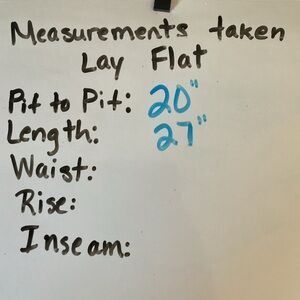 Measurements taken
Lay Flat
Pit to Pit: 20"
Length: 27"
Waist:
Rise:
Inseam: